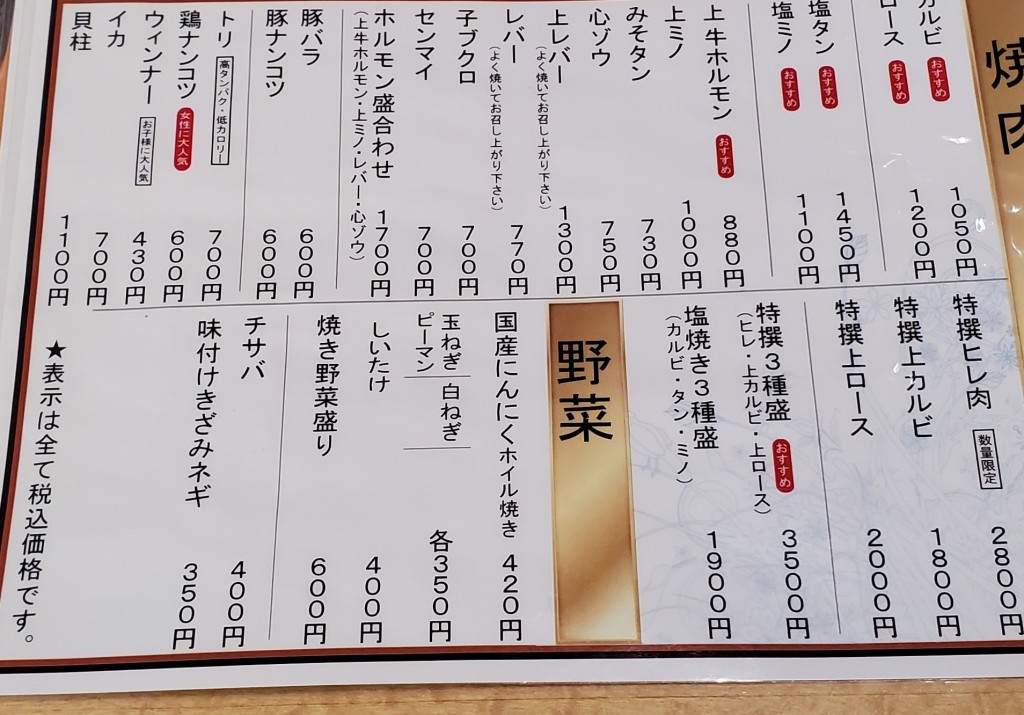 焼肉
カルビ おすすめ 1050円
ロース おすすめ 1200円
塩タン おすすめ 1450円
塩ミノ おすすめ 1100円
上牛ホルモン おすすめ 880円
上ミノ 1000円
みそタン 730円
心ゾウ 750円
上レバー 1300円
(よく焼いてお召し上がり下さい)
レバー 770円
(よく焼いてお召し上がり下さい)
子ブクロ 700円
センマイ 700円
ホルモン盛合わせ 1700円
(上牛ホルモン・上ミノ・レバー・心ゾウ)
豚バラ 600円
豚ナンコツ 600円
トリ 高タンパク・低カロリー 700円
鶏ナンコツ 女性に大人気 600円
ウィンナー お子様に大人気 430円
イカ 700円
貝柱 1100円
特撰ヒレ肉 数量限定 2800円
特撰上カルビ 1800円
特撰上ロース 2000円
特撰3種盛 おすすめ 3500円
(ヒレ・上カルビ・上ロース)
塩焼き3種盛 1900円
(カルビ・タン・ミノ)
野菜
国産にんにくホイル焼き 420円
玉ねぎ 白ねぎ 各350円
ピーマン
しいたけ 400円
焼き野菜盛り 600円
チサバ 400円
味付けきざみネギ 350円
★表示は全て税込価格です。